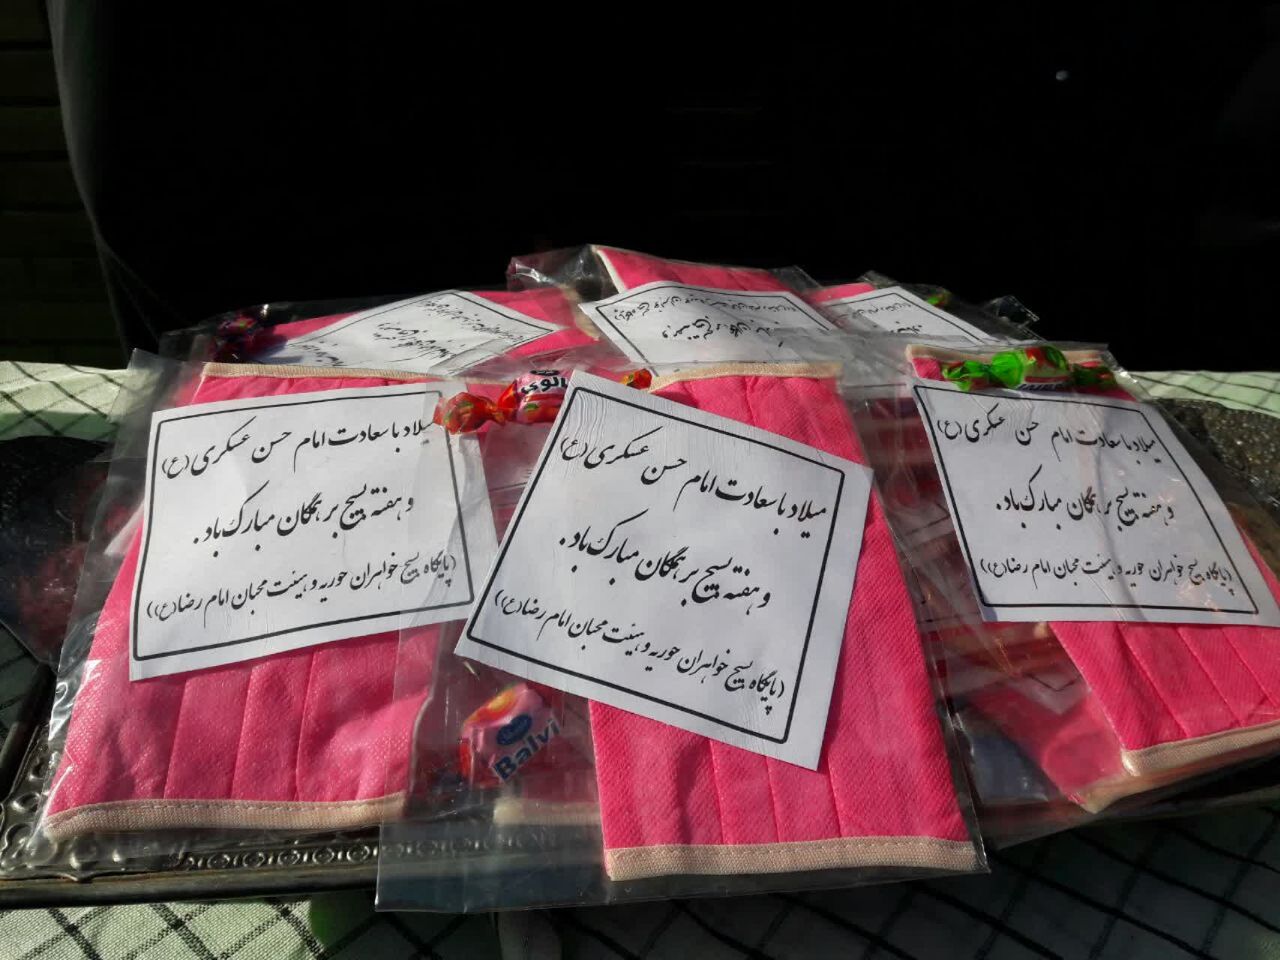 میلاد با سعادت امام حسن عسکری (ع)
و هفته بسیج بر همگان مبارک باد.
(پایگاه بسیج خواهران حوریه و هیئت محبان امام رضا(ع))
میلاد با سعادت امام حسن عسکری (ع)
و هفته بسیج بر همگان مبارک باد.
(پایگاه بسیج خواهران حوریه و هیئت محبان امام رضا(ع))
میلاد با سعادت امام حسن عسکری (ع)
و هفته بسیج بر همگان مبارک باد.
(پایگاه بسیج خواهران حوریه و هیئت محبان امام رضا(ع))
Balvi